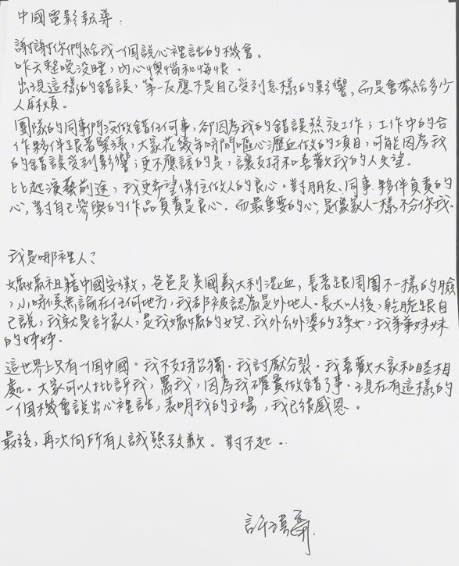 中國電影報導:
謝謝你們給我一個說心裡話的機會。
昨天整晚沒睡，內心懊惱和悔恨。
出現這樣的錯誤，第一反應不是自己受到怎樣的影響，而是會帶給多少
人麻煩。
團隊的同事們沒做錯任何事，卻因為我的錯誤熬夜工作；工作中的合
作夥伴跟著緊張，大家花幾年時間嘔心瀝血做的項目，可能因為我
的錯誤受到影響；更不應該的是，讓支持和喜歡我的人失望。
比起演藝前途，我更希望保住做人的良心。對朋友、同事、夥伴負責的
心，對自己參與的作品負責是良心。而最重要的心，是像家人一樣不分你我。
我是哪裡人？
媽媽祖籍中國安徽，爸爸是美國義大利混血，長著跟周圍不一樣的臉
，小時候無論在任何地方，我都被認為是外地人。長大以後，乾脆跟自
己說，我就是許家人，是我媽媽的女兒、我外公外婆的孫女，我弟弟妹妹
的姊姊。
這世界上只有一個中國。我不支持台獨。我討厭分裂。我喜歡大家和睦相
處。大家可以批評我，罵我，因為我確實做錯了事。現在有這樣的
一個機會說出心裡話，表明我的立場，我已很感恩。
最後，再次向所有人誠懇致歉。對不起。
許瑋甯